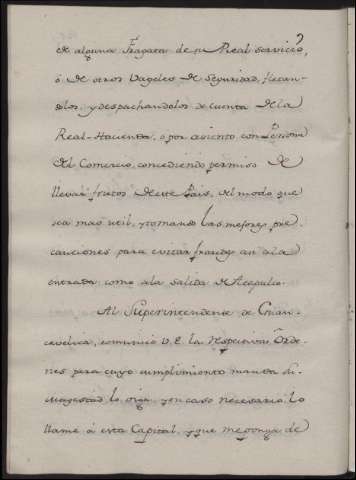 de alguna Fragata de su Real servicio,
ò de otros Vageles de seguridad, fletan-
dolos, y despachandolos de cuenta de la
Real-Hacienda, ò por asiento con Person.
del Comercio, concediendo permiso de
llevar frutos de este Pais, del modo que
sea mas util, y tomando las mejores pre-
cauciones para evitar fraudes asi a la
entrada como a la salida de Acapulco.
Al Superintendente de Guan-
cavelica, comunicò V.E. las respectivas Orde-
nes para cuyo cumplimiento manda S.
Magestad lo oiga, y en caso necesario, lo
llame à esta Capital, y que me ponga de